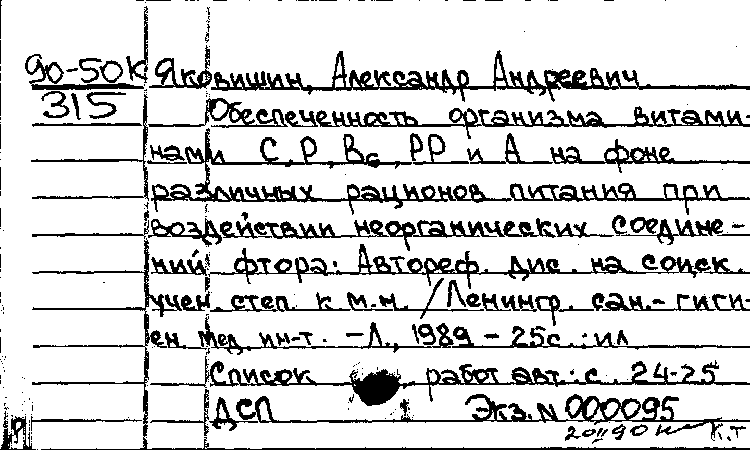 90-50К Яковишин, Александр Андреевич.
315 Обеспеченность организма витами-
нами С, Р, В6, РР и А на фоне
различных рационов питания при
воздействии неорганических соедине-
ний фтора: Автореф. дис. на соиск.
учен. степ. к.м.н. / Ленингр. сан.-гиги-
ен. мед. ин-т. - Л., 1989 - 25с.: ил
Список работ авт.: с. 24-25
ДСП Экз. N 000095
К.Т